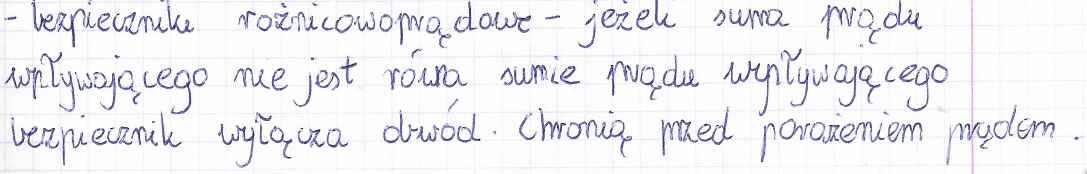 - bezpieczniki rożnicowoprądowe - jeżeli suma prądu
wpływającego nie jest równa sumie prądu wypływającego
bezpiecznik wyłącza obwód. Chronią przed porażeniem prądem.